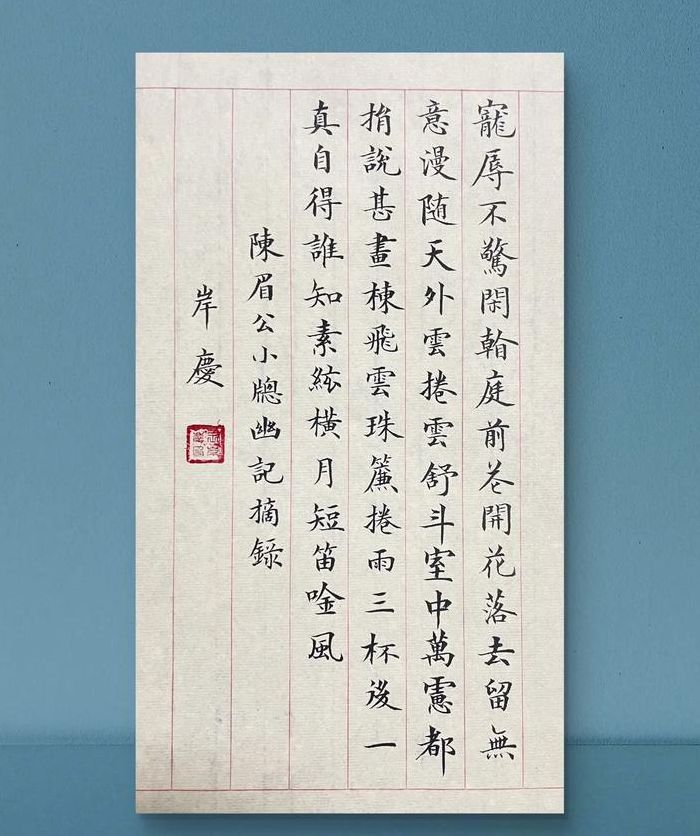 寵辱不驚閑看庭前芲開花落去留無
意漫随天外雲捲雲舒斗室中萬慮都
捐說甚畫棟飛雲珠簾捲雨三杯後一
真自得誰知素絃橫月短笛唫風
陳眉公小牕幽記摘録
岸慶